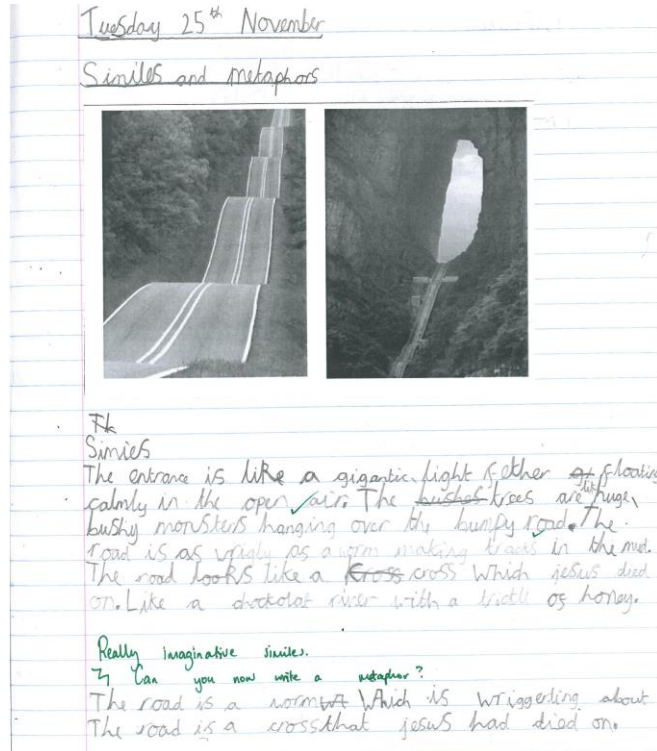 Tuesday 25th November
Similes and metaphors
Simies
The entrance is like a gigantic, light fether floating
calmly in the open air. The bushes trees are like huge,
bushy monsters hanging over the bumpy road. The
road is as wrigly as a worm making tracks in the mud.
The road looks like a Kross cross which jesus died
on. Like a chockolat river with a trickle of honey.
Really imaginative similes.
Can you now write a metaphor?
The road is a worm Which is wriggerling about
The road is a cross that jesus had died on.